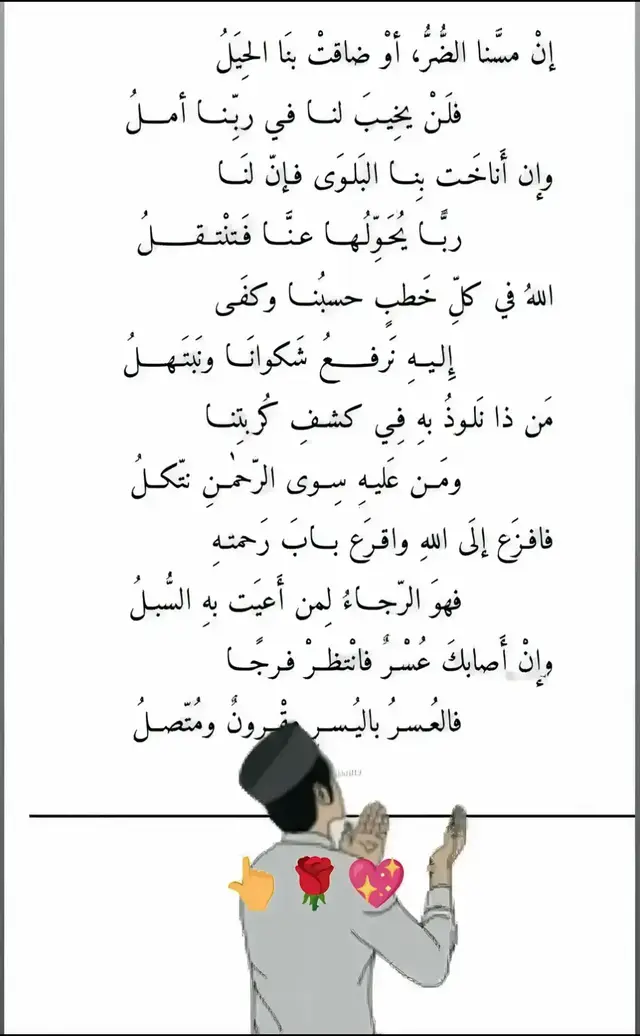 إنْ مسَّنا الضُّرُّ، أوْ ضاقتْ بنَا الحِيَلُ
فلَنْ يخِيبَ لنا في ربِّنا أملُ
وإن أَناخَت بِنا البَلوَى فإنّ لنَا
ربًّا يُحَوِّلُها عنَّا فَتنْتقلُ
اللهُ في كلِّ خَطبٍ حسبُنا وكفَى
إليهِ نَرفعُ شَكوانَا ونَبتَهلُ
مَن ذا نَلوذُ بهِ فِي كشفِ كُربتِنا
ومَن عَليهِ سِوى الرّحمٰنِ نتّكلُ
فافزَع إلَى اللهِ واقرَع بابَ رَحمتهِ
فهوَ الرّجاءُ لِمن أَعيَت بهِ السُّبلُ
وإنْ أَصابكَ عُسْرٌ فانْتظرْ فرجًا
فالعُسرُ باليُسرِ مقْرونٌ ومُتّصلُ